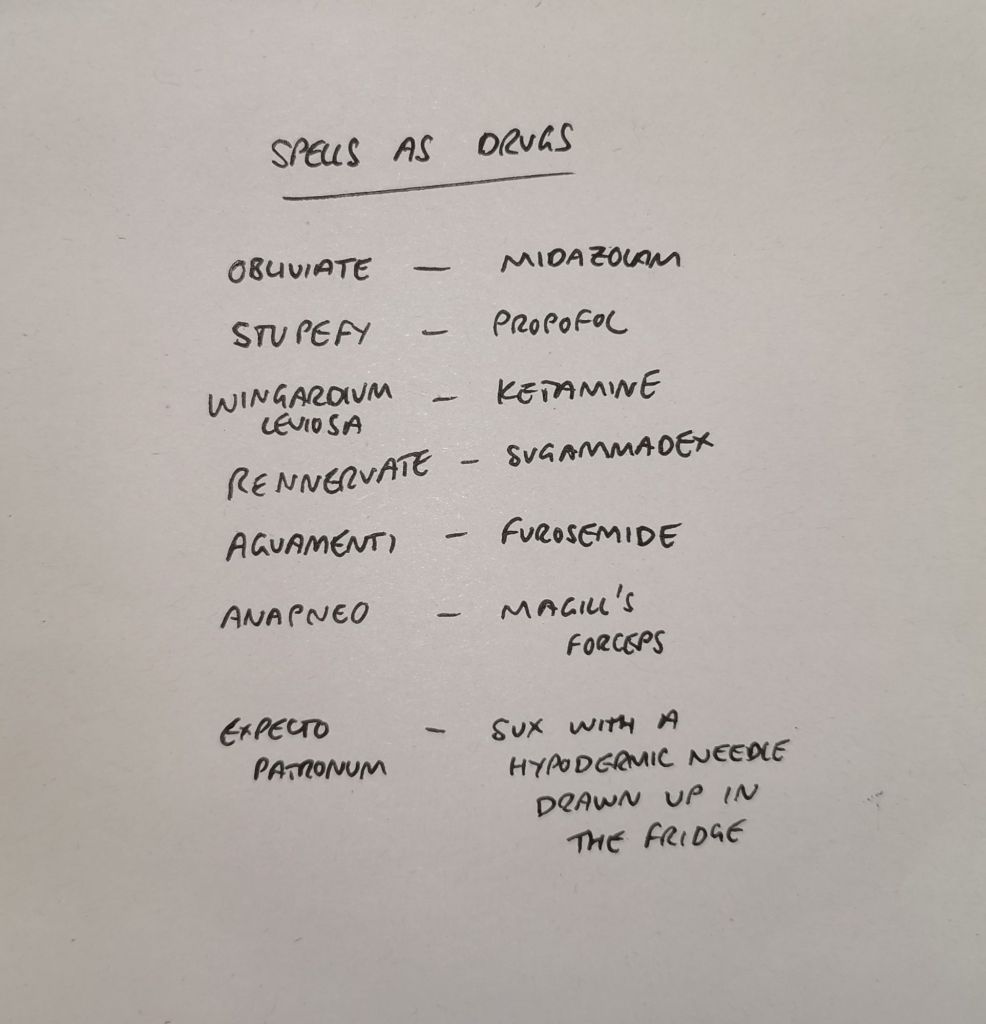 SPELLS AS DRUGS
OBLIVIATE — MIDAZOLAM
STUPEFY — PROPOFOL
WINGARDIUM — KETAMINE
LEVIOSA
RENNERVATE — SUGAMMADEX
AGUAMENTI — FUROSEMIDE
ANAPNEO — MAGILL'S
FORCEPS
EXPECTO — SUX WITH A
PATRONUM HYPODERMIC NEEDLE
DRAWN UP IN
THE FRIDGE